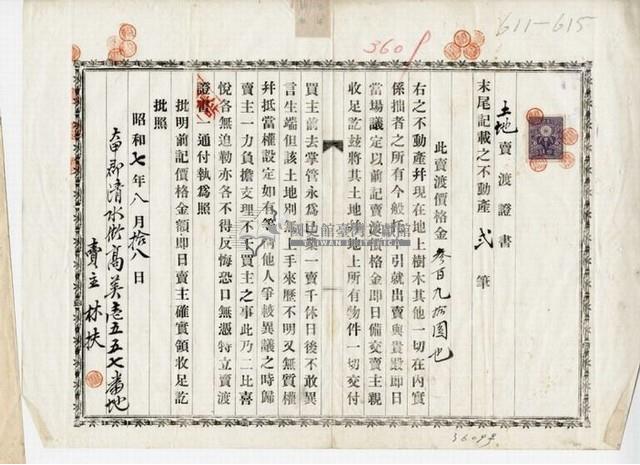 611-615
360
土地賣渡證書
末尾記載之不動產 弍筆
此賣渡價格金 參百九拾圓也
右之不動產幷現在地上樹木其他一切在內實
係拙者之所有今般托中引就出賣與貴殿即日
當場議定以前記賣渡價格金即日備交賣主親
收足訖玆將其土地幷地上所有物件一切交付
買主前去掌管永爲己業一賣千休日後不敢異
言生端但該土地別無上手來歷不明又無質權
幷抵當權設定如有他人爭較異議之時歸
賣主一力負擔支理不干買主之事此乃二比喜
悅各無迫勒亦各不得反悔恐口無憑特立賣渡
證書一通付執爲照
批明前記價格金額即日賣主確實領收足訖
批照
昭和七年八月拾八日
大甲郡清水街高美五五七番地
賣主 林扶
國史館臺灣文獻館
TAIWAN HISTORICA